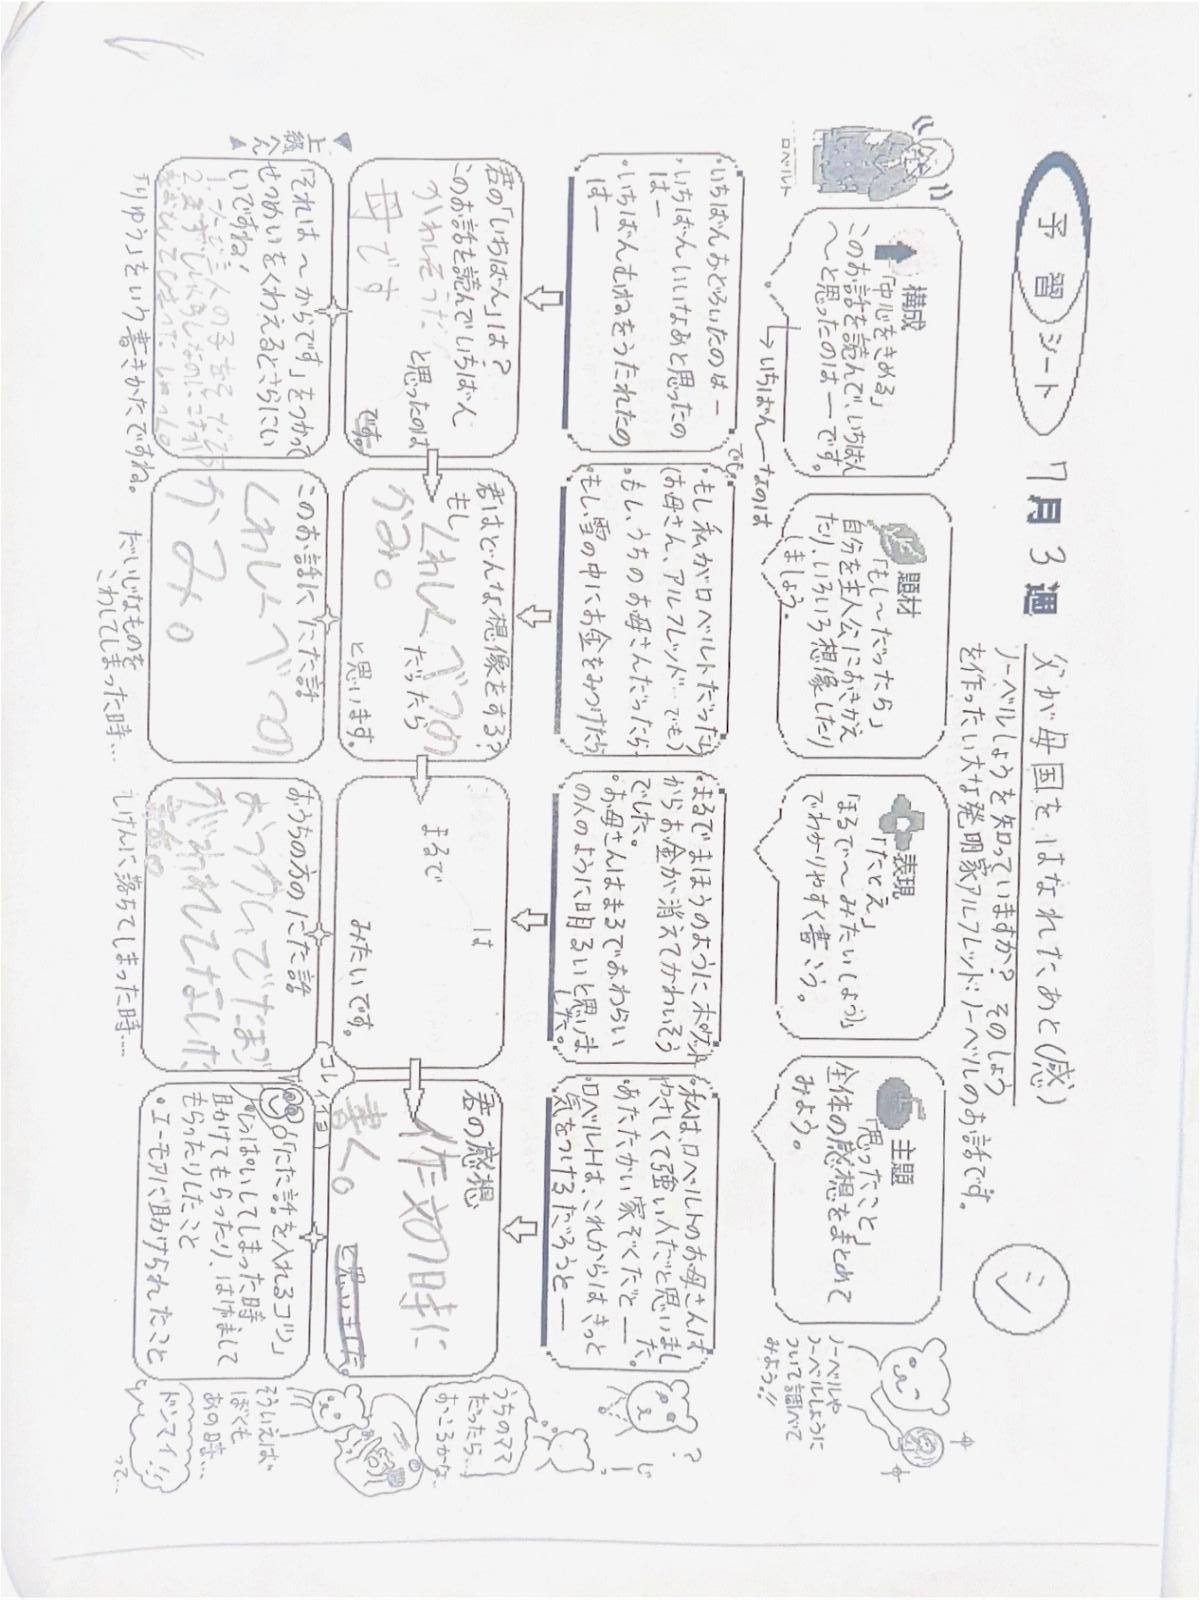 予習シート 7月3週
父が母国をはなれたあと(感)
シ
ノーベルしょうを知っていますか？そのしょう
を作ったい大な発明家アルフレッド・ノーベルのお話です。
ロベルト
構成
「中心をきめる」
このお話を読んで、いちばん
〜と思ったのは―です。
→いちばん―なのは
題材
「もし〜だったら」
自分を主人公におきかえ
たり、いろいろ想像したり
しましょう。
表現
「たとえ」
「まるで〜みたい(よう)」
でわかりやすく書こう。
主題
「思ったこと」
全体の感想をまとめて
みよう。
ノーベルや
ノーベルしょうに
ついて調べて
みよう！！
・いちばんおどろいたのは―
・いちばんいいなあと思ったの
は―
・いちばんむねをうたれたの
は―
でも
・もし私がロベルトだったら
(お母さん、アルフレッド…でも)
・もし、うちのお母さんだったら
・もし、雪の中にお金をみつけたら
・まるでまほうのようにポケット
からお金が消えてかわいそう
でした。
・お母さんはまるでおわらい
の人のように明るいと思いま
した。
・私は、ロベルトのお母さんは
やさしくて強い人だと思いました。
・あたたかい家ぞくだと―
・ロベルトは、これからはきっと
気をつけるだろうと―
？
じー
君の「いちばん」は？
このお話を読んでいちばん
かわいそうだ と思ったのは
母です
です。
君はどんな想像をする？
もし くれよんべつの
だったら
かみ。
と思います。
は
まるで
みたいです。
君の感想
作文の時に
書く。
と思いました。
うちのママ
だったら…
おこるかな…
上級へん
「それは〜からです」をつかって
せつめいをくわえるとさらにい
いですね！
「りゆう」をいう書きかたですね。
このお話にた話
くれよんべつの
かみ。
だいじなものを
こわしてしまった時…
おうちの方のにた話
しけんに落ちてしまった時…
コレイイヨ
「にた話を入れるコツ」
・しっぱいしてしまった時
助けてもらったり、はげまして
もらったりしたこと
・ユーモアに助けられたこと
そういえば
ぼくも
あの時…
ドンマイ！！
って…